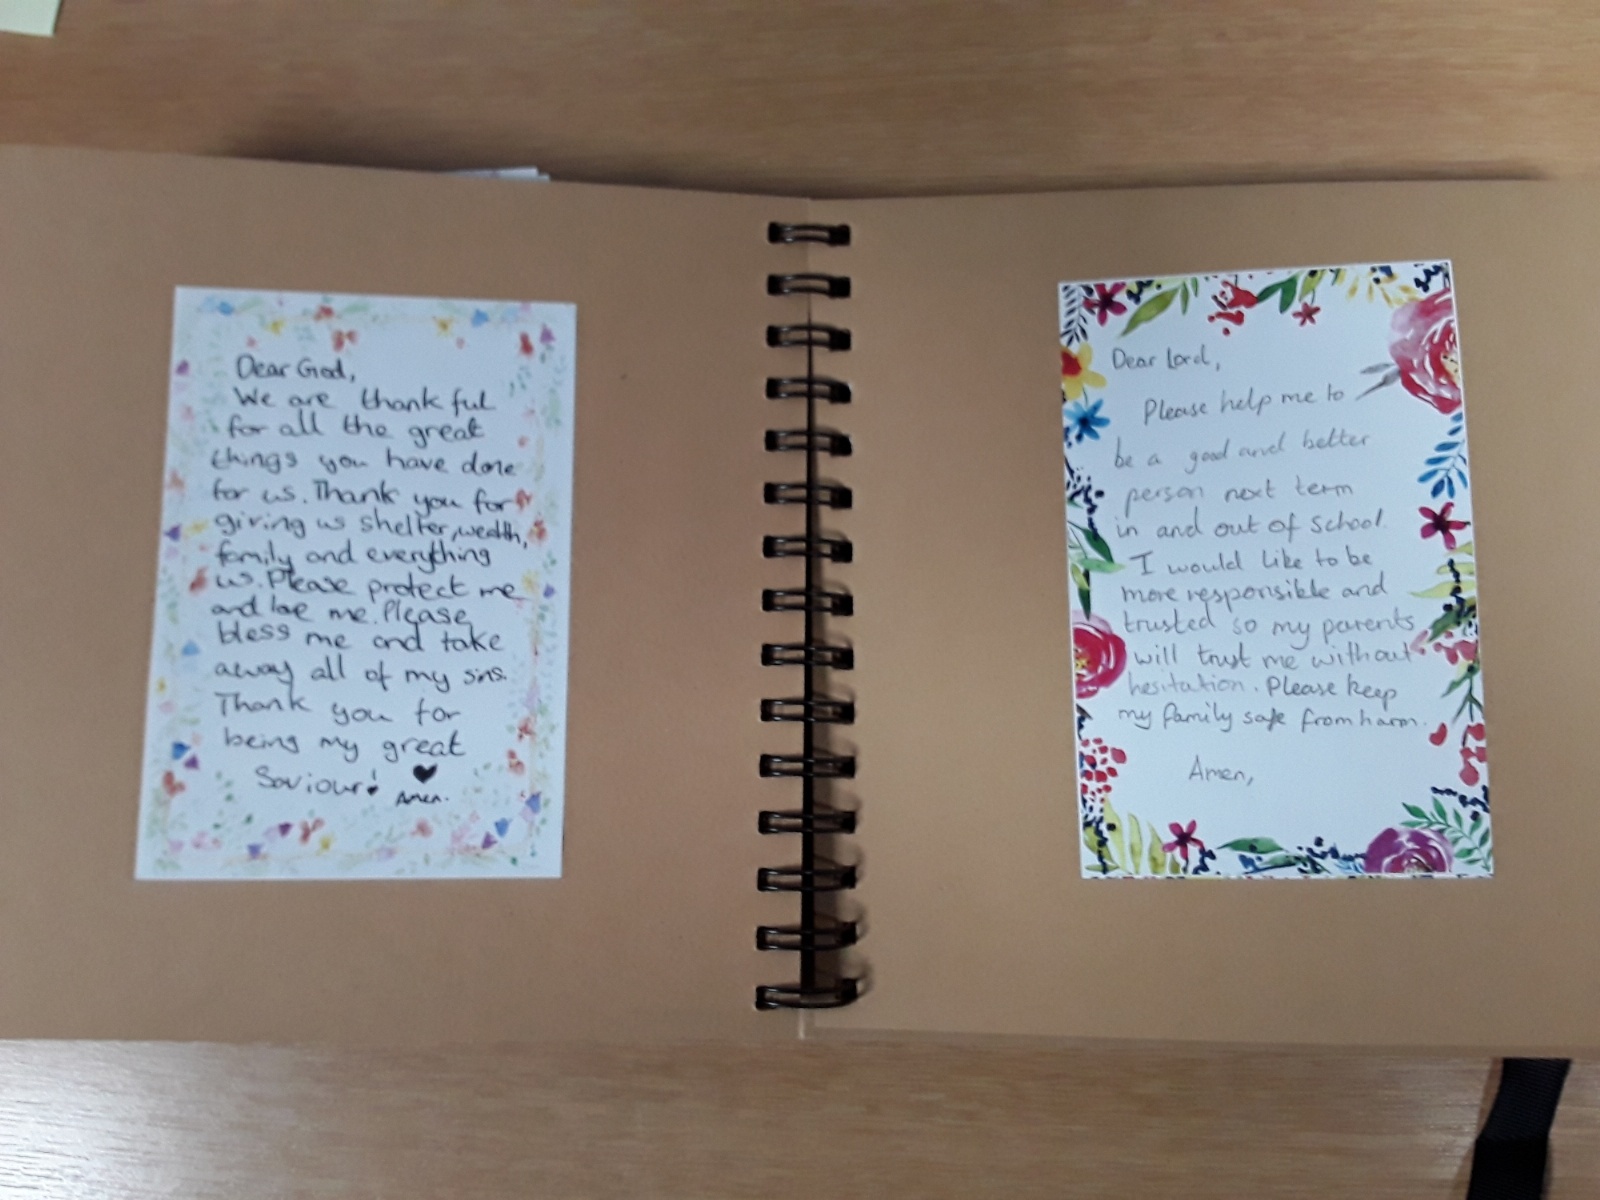 Dear God,
We are thankful
for all the great
things you have done
for us. Thank you for
giving us shelter, wealth,
family and everything
us. Please protect me
and love me. Please
bless me and take
away all of my sins.
Thank you for
being my great
Saviour! ♥
Amen.
Dear Lord,
Please help me to
be a good and better
person next term
in and out of school.
I would like to be
more responsible and
trusted so my parents
will trust me without
hesitation. Please keep
my family safe from harm.
Amen,